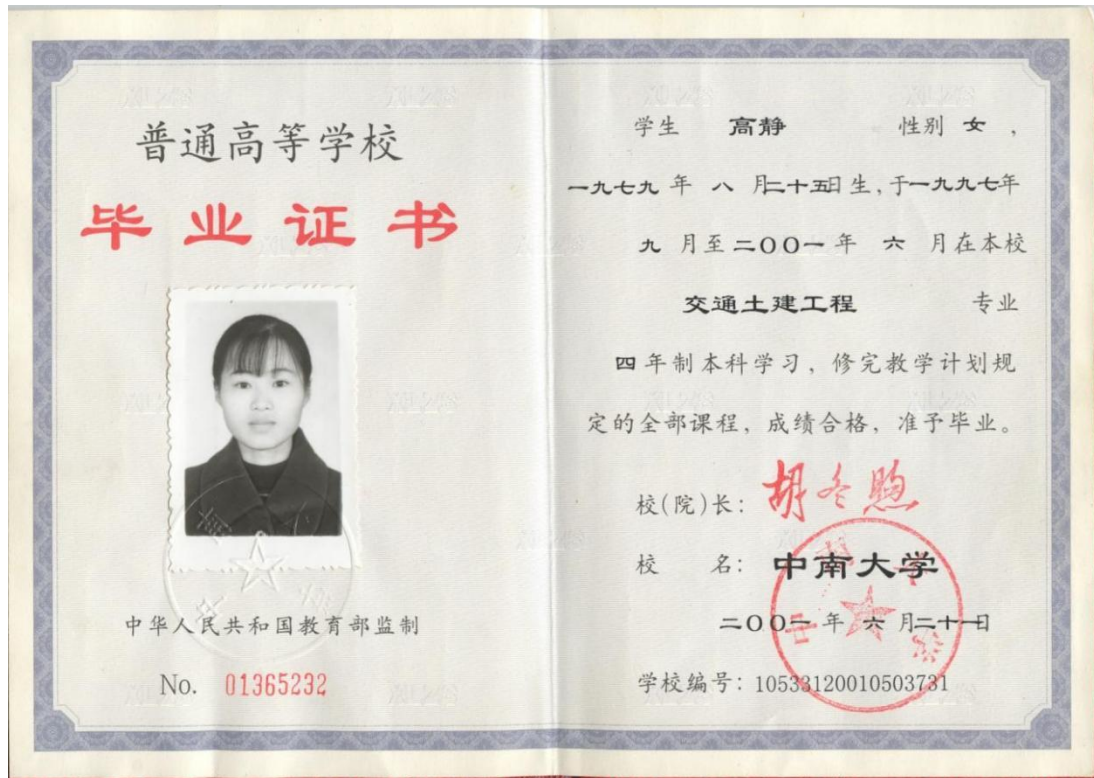 普通高等学校
毕业证书
中华人民共和国教育部监制
No. 01365232
学生 高静 性别 女 ,
一九七九 年 八 月二十五日生,于一九九七年
九 月至二〇〇一年 六 月在本校
交通土建工程 专业
四年制本科学习，修完教学计划规
定的全部课程，成绩合格，准予毕业。
校(院)长: 胡冬煦
校 名: 中南大学
二〇〇一年 六 月二十一日
学校编号: 10533120010503731